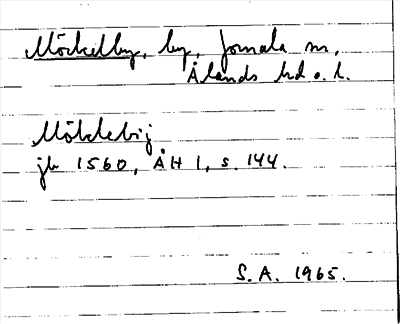 Möckelby, by, Jomala sn,
Ålands hd o. l.
Möcklebij
jb 1560, ÅH 1, s. 144.
S.A. 1965.